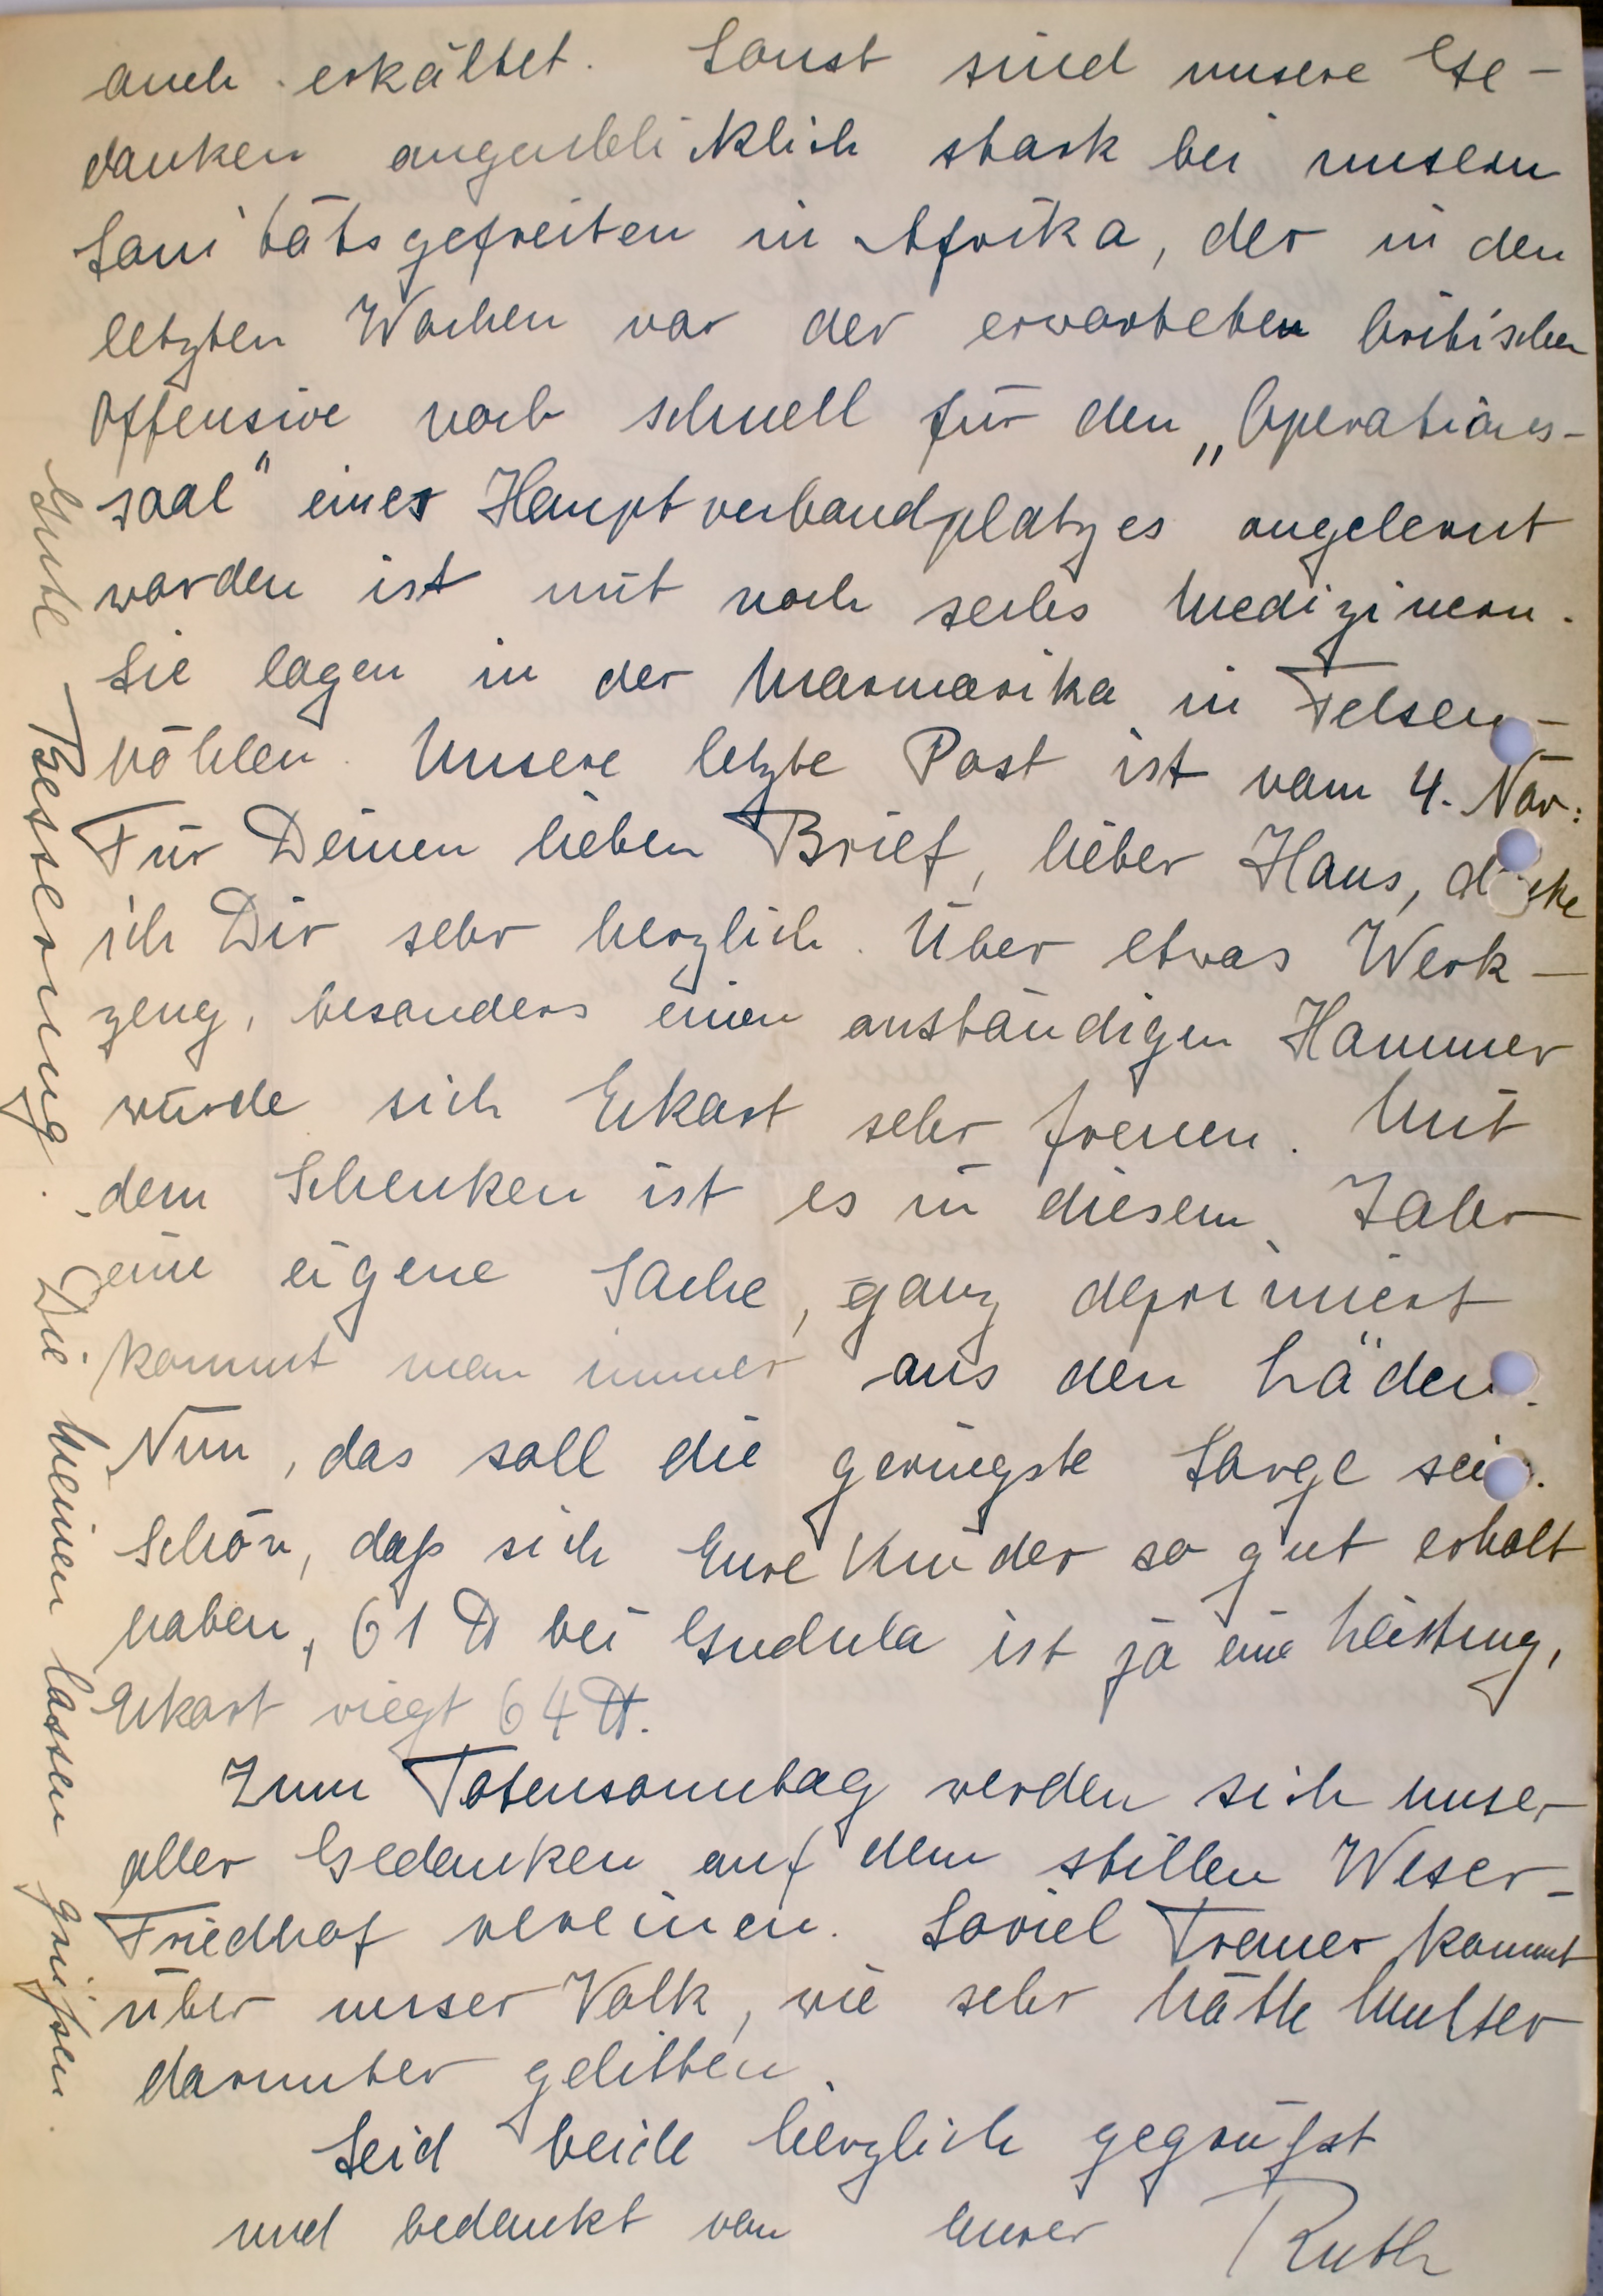 auch erkältet. Sonst sind unsere Ge-
danken augenblicklich stark bei unserm
Sanitätsgefreiten in Afrika, der in den
letzten Wochen vor der erwarteten britischen
Offensive noch schnell für den „Operations-
saal" eines Hauptverbandplatzes angelernt
worden ist mit noch sechs Medizinern.
Sie lagen in der Marmarika in Felsen-
höhlen. Unsere letzte Post ist vom 4. Nov.
Für Deinen lieben Brief, lieber Hans, danke
ich Dir sehr herzlich. Über etwas Werk-
zeug, besonders einen anständigen Hammer
würde sich Eckart sehr freuen. Mit
dem Schenken ist es in diesem Jahr
eine eigene Sache, ganz deprimiert
kommt man immer aus den Läden.
Nun, das soll die geringste Sorge sein.
Schön, daß sich Eure Kinder so gut erholt
haben, 61 ℔ bei Gudula ist ja eine Leistung,
Eckart wiegt 64 ℔.
Zum Totensonntag werden sich unser
aller Gedanken auf dem stillen Weser-
Friedhof vereinen. Soviel Trauer kommt
über unser Volk, wie sehr hätte Mutter
darunter gelitten.
Seid beide herzlich gegrüßt
und bedankt von Eurer Ruth
Gute Besserung. Die Meinen lassen grüßen.